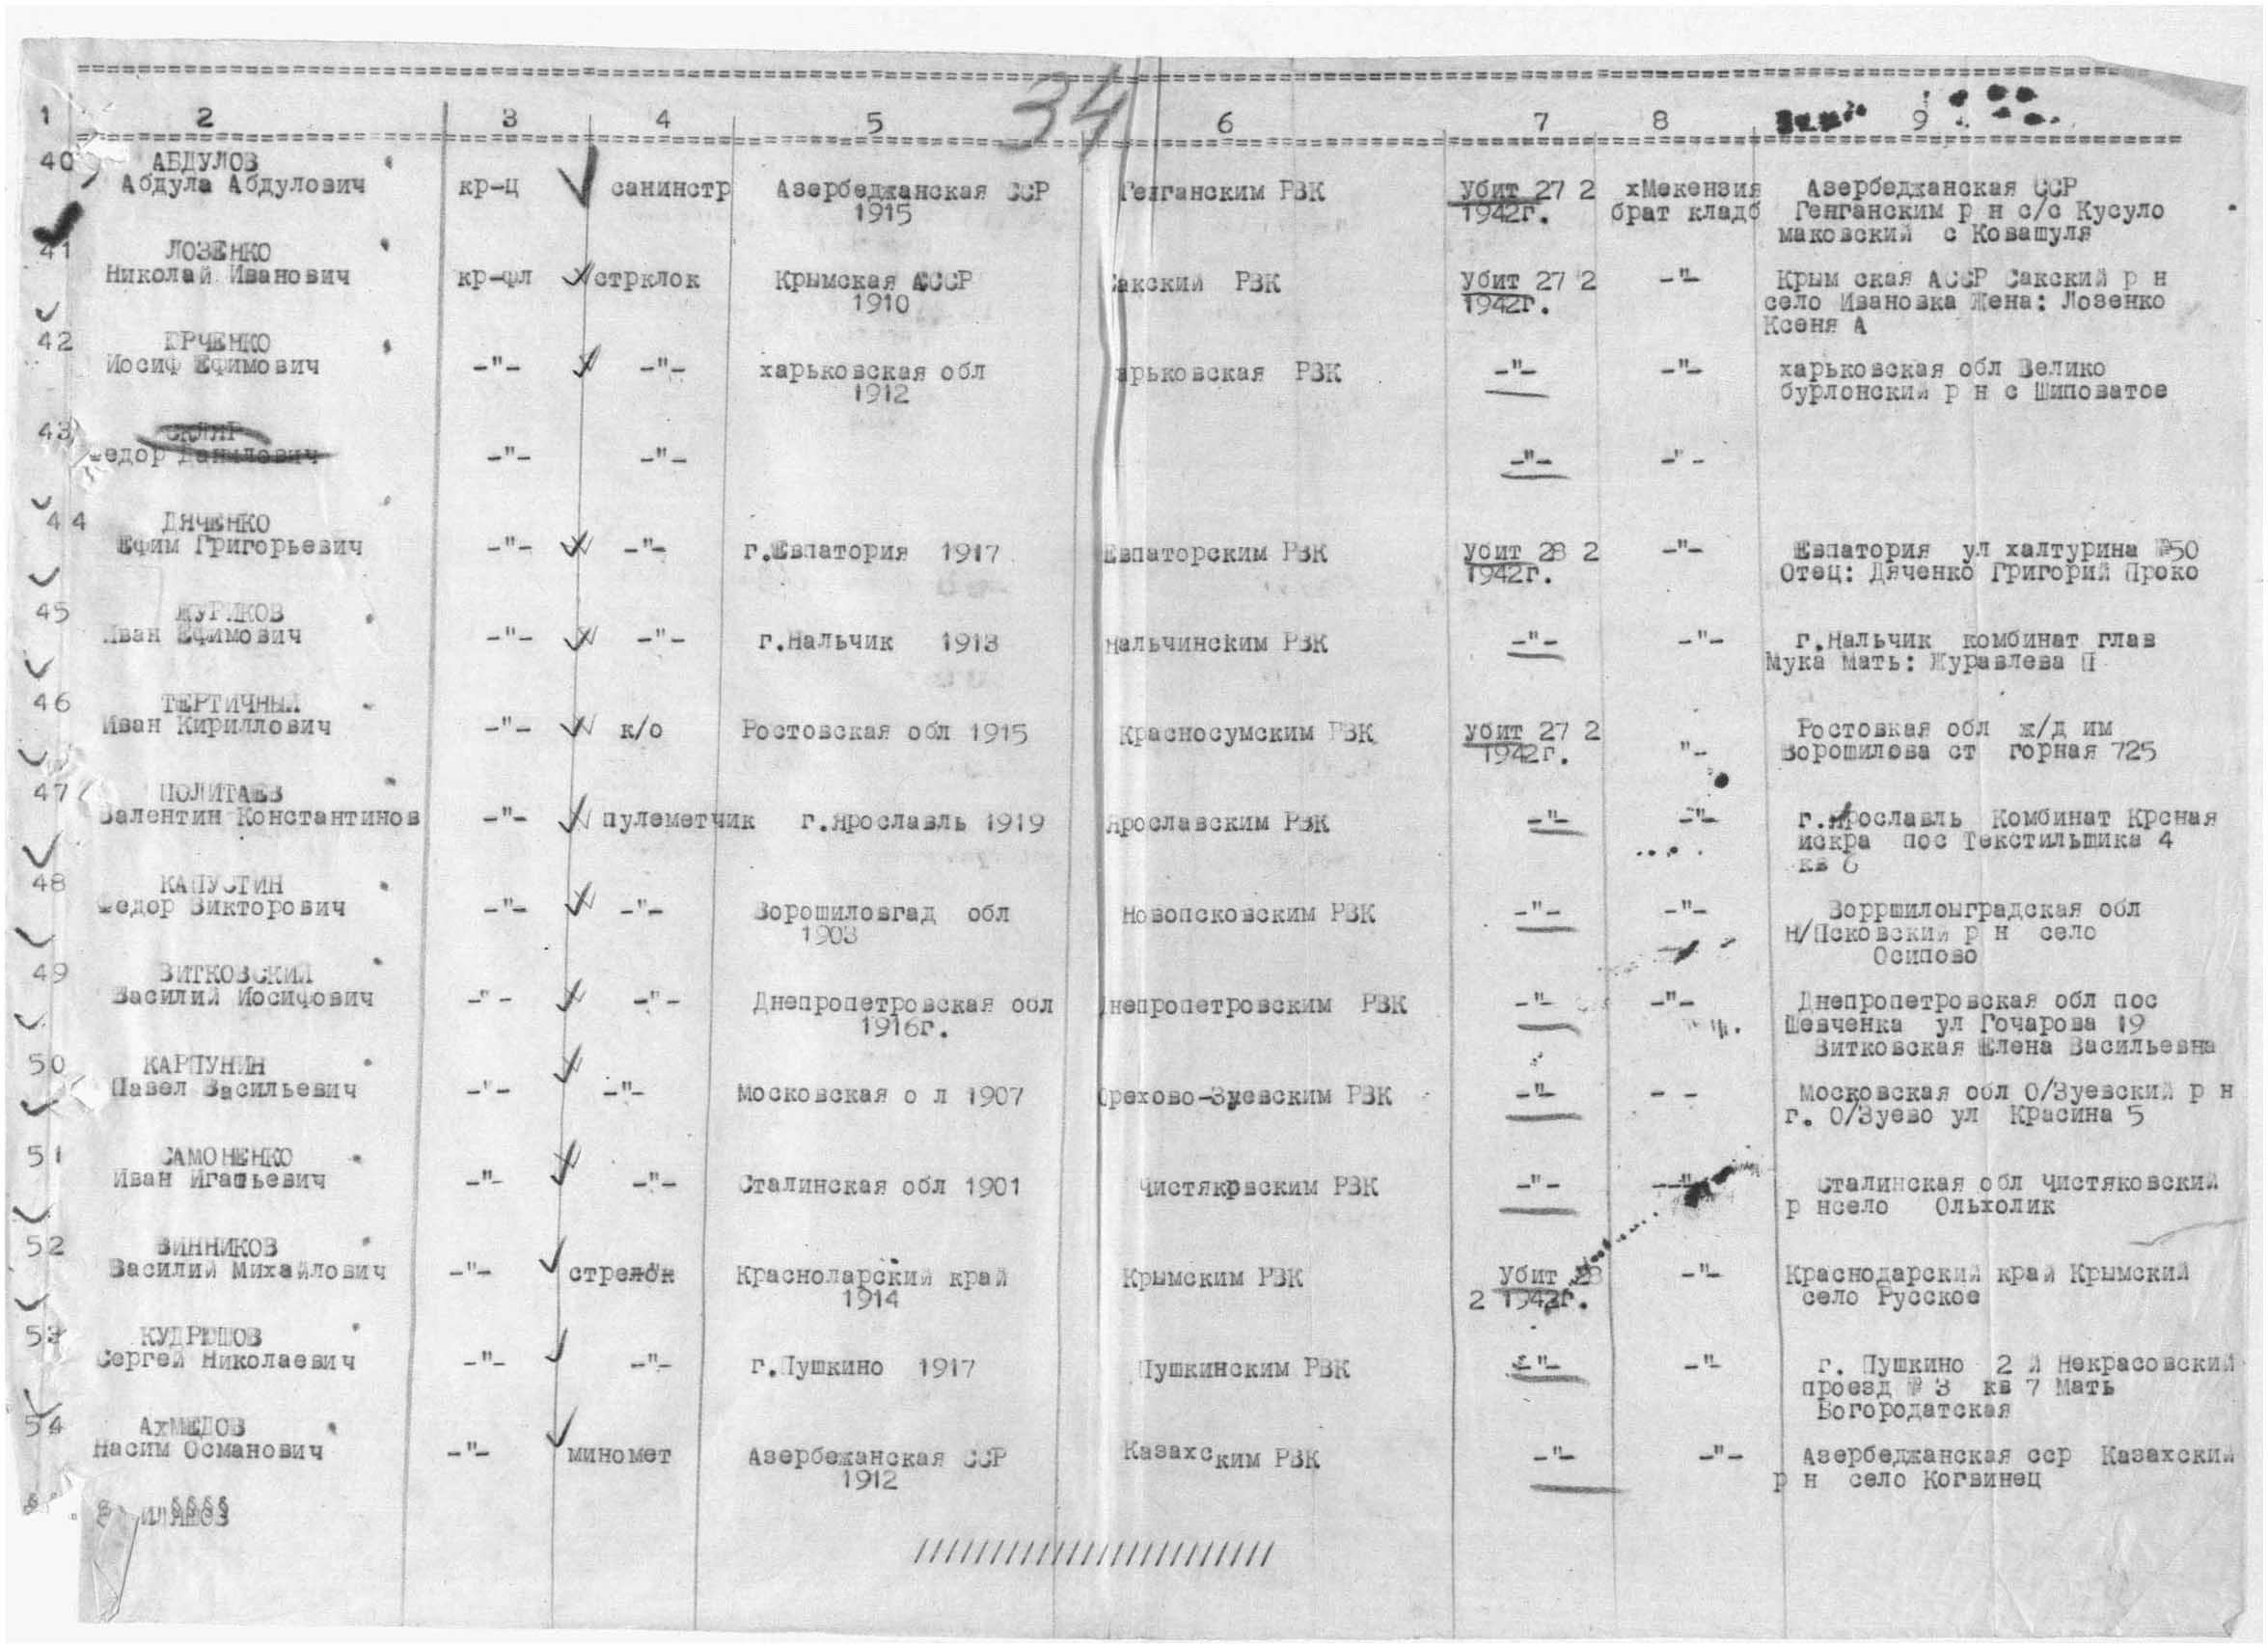 34
1 2 3 4 5 6 7 8 9
40 АБДУЛОВ
Абдула Абдулович кр-ц санинстр Азербеджанская ССР Генганским РВК Убит 27 2 хМекензия Азербеджанская ССР
1915 1942г. брат кладб Генганским р н с/с Кусуло
маковский с Ковашуля
41 ЛОЗЕНКО
Николай Иванович кр-фл стрклок Крымская АССР Сакский РВК Убит 27 2 -"- Крым ская АССР Сакский р н
1910 1942г. село Ивановка Жена: Лозенко
Ксеня А
42 ЮРЧЕНКО
Иосиф Ефимович -"- -"- харьковская обл арьковская РВК -"- -"- харьковская обл Велико
1912 бурлонский р н с Шиповатое
43 СКЛЯР
Федор Данилович -"- -"- -"- -"-
44 ДЯЧЕНКО
Ефим Григорьевич -"- -"- г.Евпатория 1917 Евпаторским РВК Убит 28 2 -"- Евпатория ул халтурина №50
1942г. Отец: Дяченко Григорий Проко
45 ЖУРИКОВ
Иван Ефимович -"- -"- г.Нальчик 1913 Нальчинским РВК -"- -"- г.Нальчик комбинат глав
Мука Мать: Журавлева П
46 ТЕРТИЧНЫЙ
Иван Кириллович -"- к/о Ростовская обл 1915 Красносумским РВК Убит 27 2 Ростовкая обл ж/д им
1942г. "- Ворошилова ст горная 725
47 ПОЛИТАЕВ
Валентин Константинов -"- пулеметчик г.Ярославль 1919 Ярославским РВК -"- -"- г.Ярославль Комбинат Крсная
искра пос Текстильщика 4
кв 6
48 КАПУСТИН
Федор Викторович -"- -"- Ворошиловгад обл Новопсковским РВК -"- -"- Ворршилоыградская обл
1903 Н/Псковский р н село
Осипово
49 ВИТКОВСКИЙ
Василий Иосифович -"- -"- Днепропетровская обл Днепропетровским РВК -"- -"- Днепропетровская обл пос
1916г. Шевченка ул Гочарова 19
Витковская Елена Васильевна
50 КАРПУНИН
Павел Васильевич -"- -"- Московская о л 1907 Орехово-Зуевским РВК -"- - - Московская обл О/Зуевский р н
г. О/Зуево ул Красина 5
51 САМОНЕНКО
Иван Игатьевич -"- -"- Сталинская обл 1901 Чистяковским РВК -"- -"- Сталинская обл Чистяковский
р нсело Ольхолик
52 ВИННИКОВ
Василий Михайлович -"- стрелок Красноларский край Крымским РВК Убит 28 -"- Краснодарский край Крымский
1914 2 1942г. село Русское
53 КУДРЮШОВ
Сергей Николаевич -"- -"- г.Пушкино 1917 Пушкинским РВК -"- -"- г. Пушкино 2 й Некрасовский
проезд № 3 кв 7 Мать
Богородатская
54 АхМЕДОВ
Насим Османович -"- миномет Азербежанская ССР Казахским РВК -"- -"- Азербеджанская сср Казахский
1912 р н село Когвинец
§§§§
////////////////////////